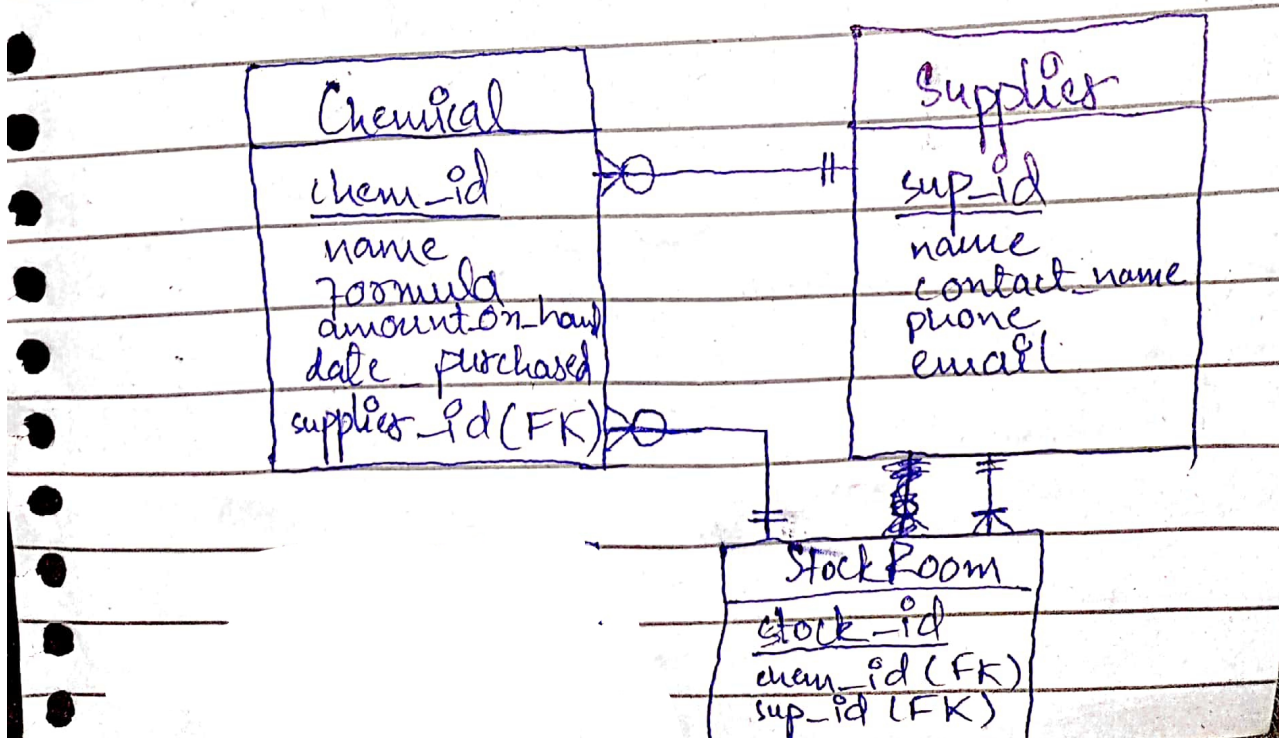 Chemical
chem_id
name
formula
amount_on_hand
date_purchased
supplier_id (FK)
Supplier
sup_id
name
contact_name
phone
email
StockRoom
stock_id
chem_id (FK)
sup_id (FK)